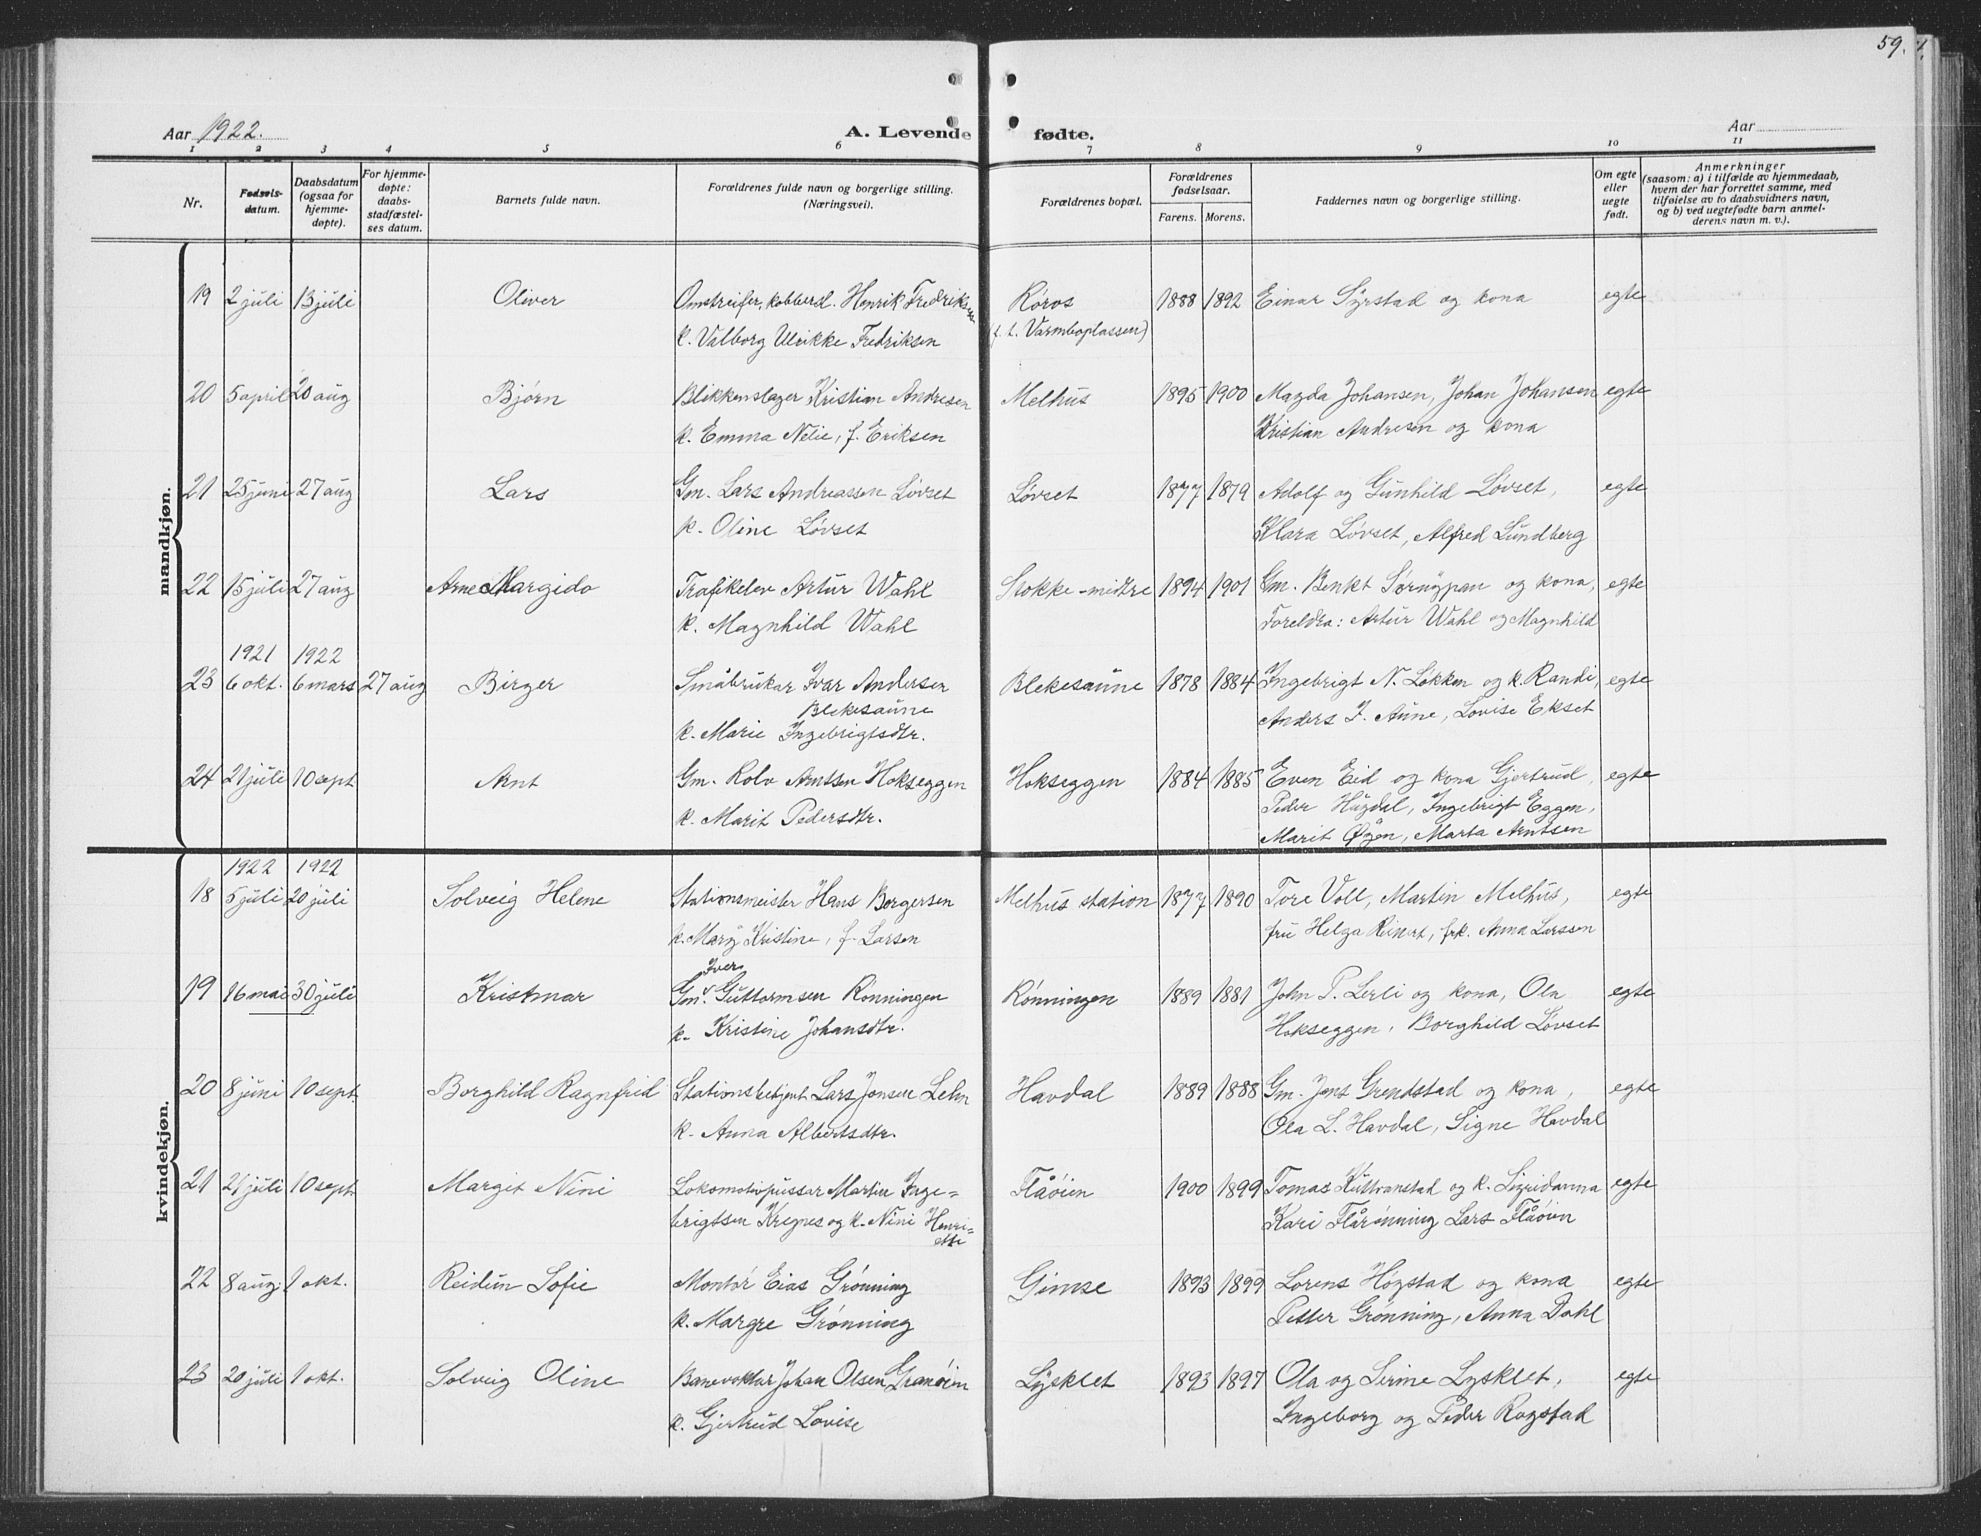 59.
Aar 1922.
A. Levende fødte.
Aar
1 2 3 4 5 6 7 8 9 10 11
Nr.
Fødsels-datum.
Daabsdatum (ogsaa for hjemme-døpte).
For hjemme-døpte: daabs-stadfæstel-ses datum.
Barnets fulde navn.
Forældrenes fulde navn og borgerlige stilling. (Næringsvei).
Forældrenes bopæl.
Forældrenes fødselsaar.
Farens. Morens.
Faddernes navn og borgerlige stilling.
Om egte eller uegte født.
Anmerkninger (saasom: a) i tilfælde av hjemmedaab, hvem der har forrettet samme, med tilføielse av to daabsvidners navn, og b) ved uegtefødte barn anmel-derens navn m. v.).
mandkjøn.
19 2 juli 13 juli Oliver Omstreifer, kobberd. Henrik Fredriksen Røros 1888 1892 Einar Syrstad og kona egte
k. Valborg Ulrikke Fredriksen (f. t. Varmboplassen)
20 5 april 20 aug Bjørn Blikkenslager Kristian Andresen Melhus 1895 1900 Magda Johansen, Johan Johansen egte
k. Emma Nelie, f. Eriksen Kristian Andresen og kona
21 25 juni 27 aug Lars Gm. Lars Andreassen Løvset Løvset 1877 1879 Adolf og Gunhild Løvset, egte
k. Oline Løvset Klara Løvset, Alfred Lundberg
22 15 juli 27 aug Arne Margido Trafikelev Artur Wahl Stokke-midtre 1894 1901 Gm. Benkt Sørnypan og kona, egte
k. Magnhild Wahl Foreldra: Artur Wahl og Magnhild
1921 1922
23 6 okt. 6 mars 27 aug Birger Småbrukar Ivar Andersen Blekesaune 1878 1884 Ingebrigt N. Løkken og k. Randi, egte
Blekesaune
k. Marie Ingebrigtsdtr. Anders J. Aune, Lovise Ekset
24 21 juli 10 sept Arnt Gm. Rolv Arntsen Hokseggen Hokseggen 1884 1885 Even Eid og kona Gjertrud, egte
k. Marit Pedersdtr. Peder Hugdal, Ingebrigt Eggen,
Marit Øyen, Marta Arntsen
kvindekjøn.
1922 1922
18 5 juli 20 juli Solveig Helene Stationsmeister Hans Borgersen Melhus station 1877 1890 Tore Voll, Martin Melhus, egte
k. Mary Kristine, f. Larsen fru Helga Reinert, frk. Anna Larssen
Iver
19 16 mai 30 juli Kristmar Gm. Guttormsen Rønningen Rønningen 1889 1881 John P. Lerli og kona, Ola egte
k. Kristine Johansdtr. Hokseggen, Borghild Løvset
20 8 juni 10 sept. Borghild Ragnfrid Stationsbetjent Lars Jonsen Lehn Havdal 1889 1888 Gm. Jens Grendstad og kona, egte
k. Anna Albertsdtr. Ola L. Havdal, Signe Havdal
21 21 juli 10 sept. Margit Nini Lokomotivpussar Martin Inge= Flåøien 1900 1899 Tomas Kuttranstad og k. Sigridanna egte
brigtsen Kregnes og k. Nini Henri= Kari Flårønning Lars Flåøien
ette
22 8 aug. 1 okt. Reidun Sofie Montør Eias Grønning Gimse 1893 1899 Lorens Høgstad og kona egte
k. Margre Grønning Petter Grønning, Anna Dahl
23 20 juli 1 okt. Solveig Oline Banevoktar Johan Olsen Granøien Lysklet 1893 1897 Ola og Serine Lysklet, egte
k. Gjertrud Lovise Ingeborg og Peder Rogstad